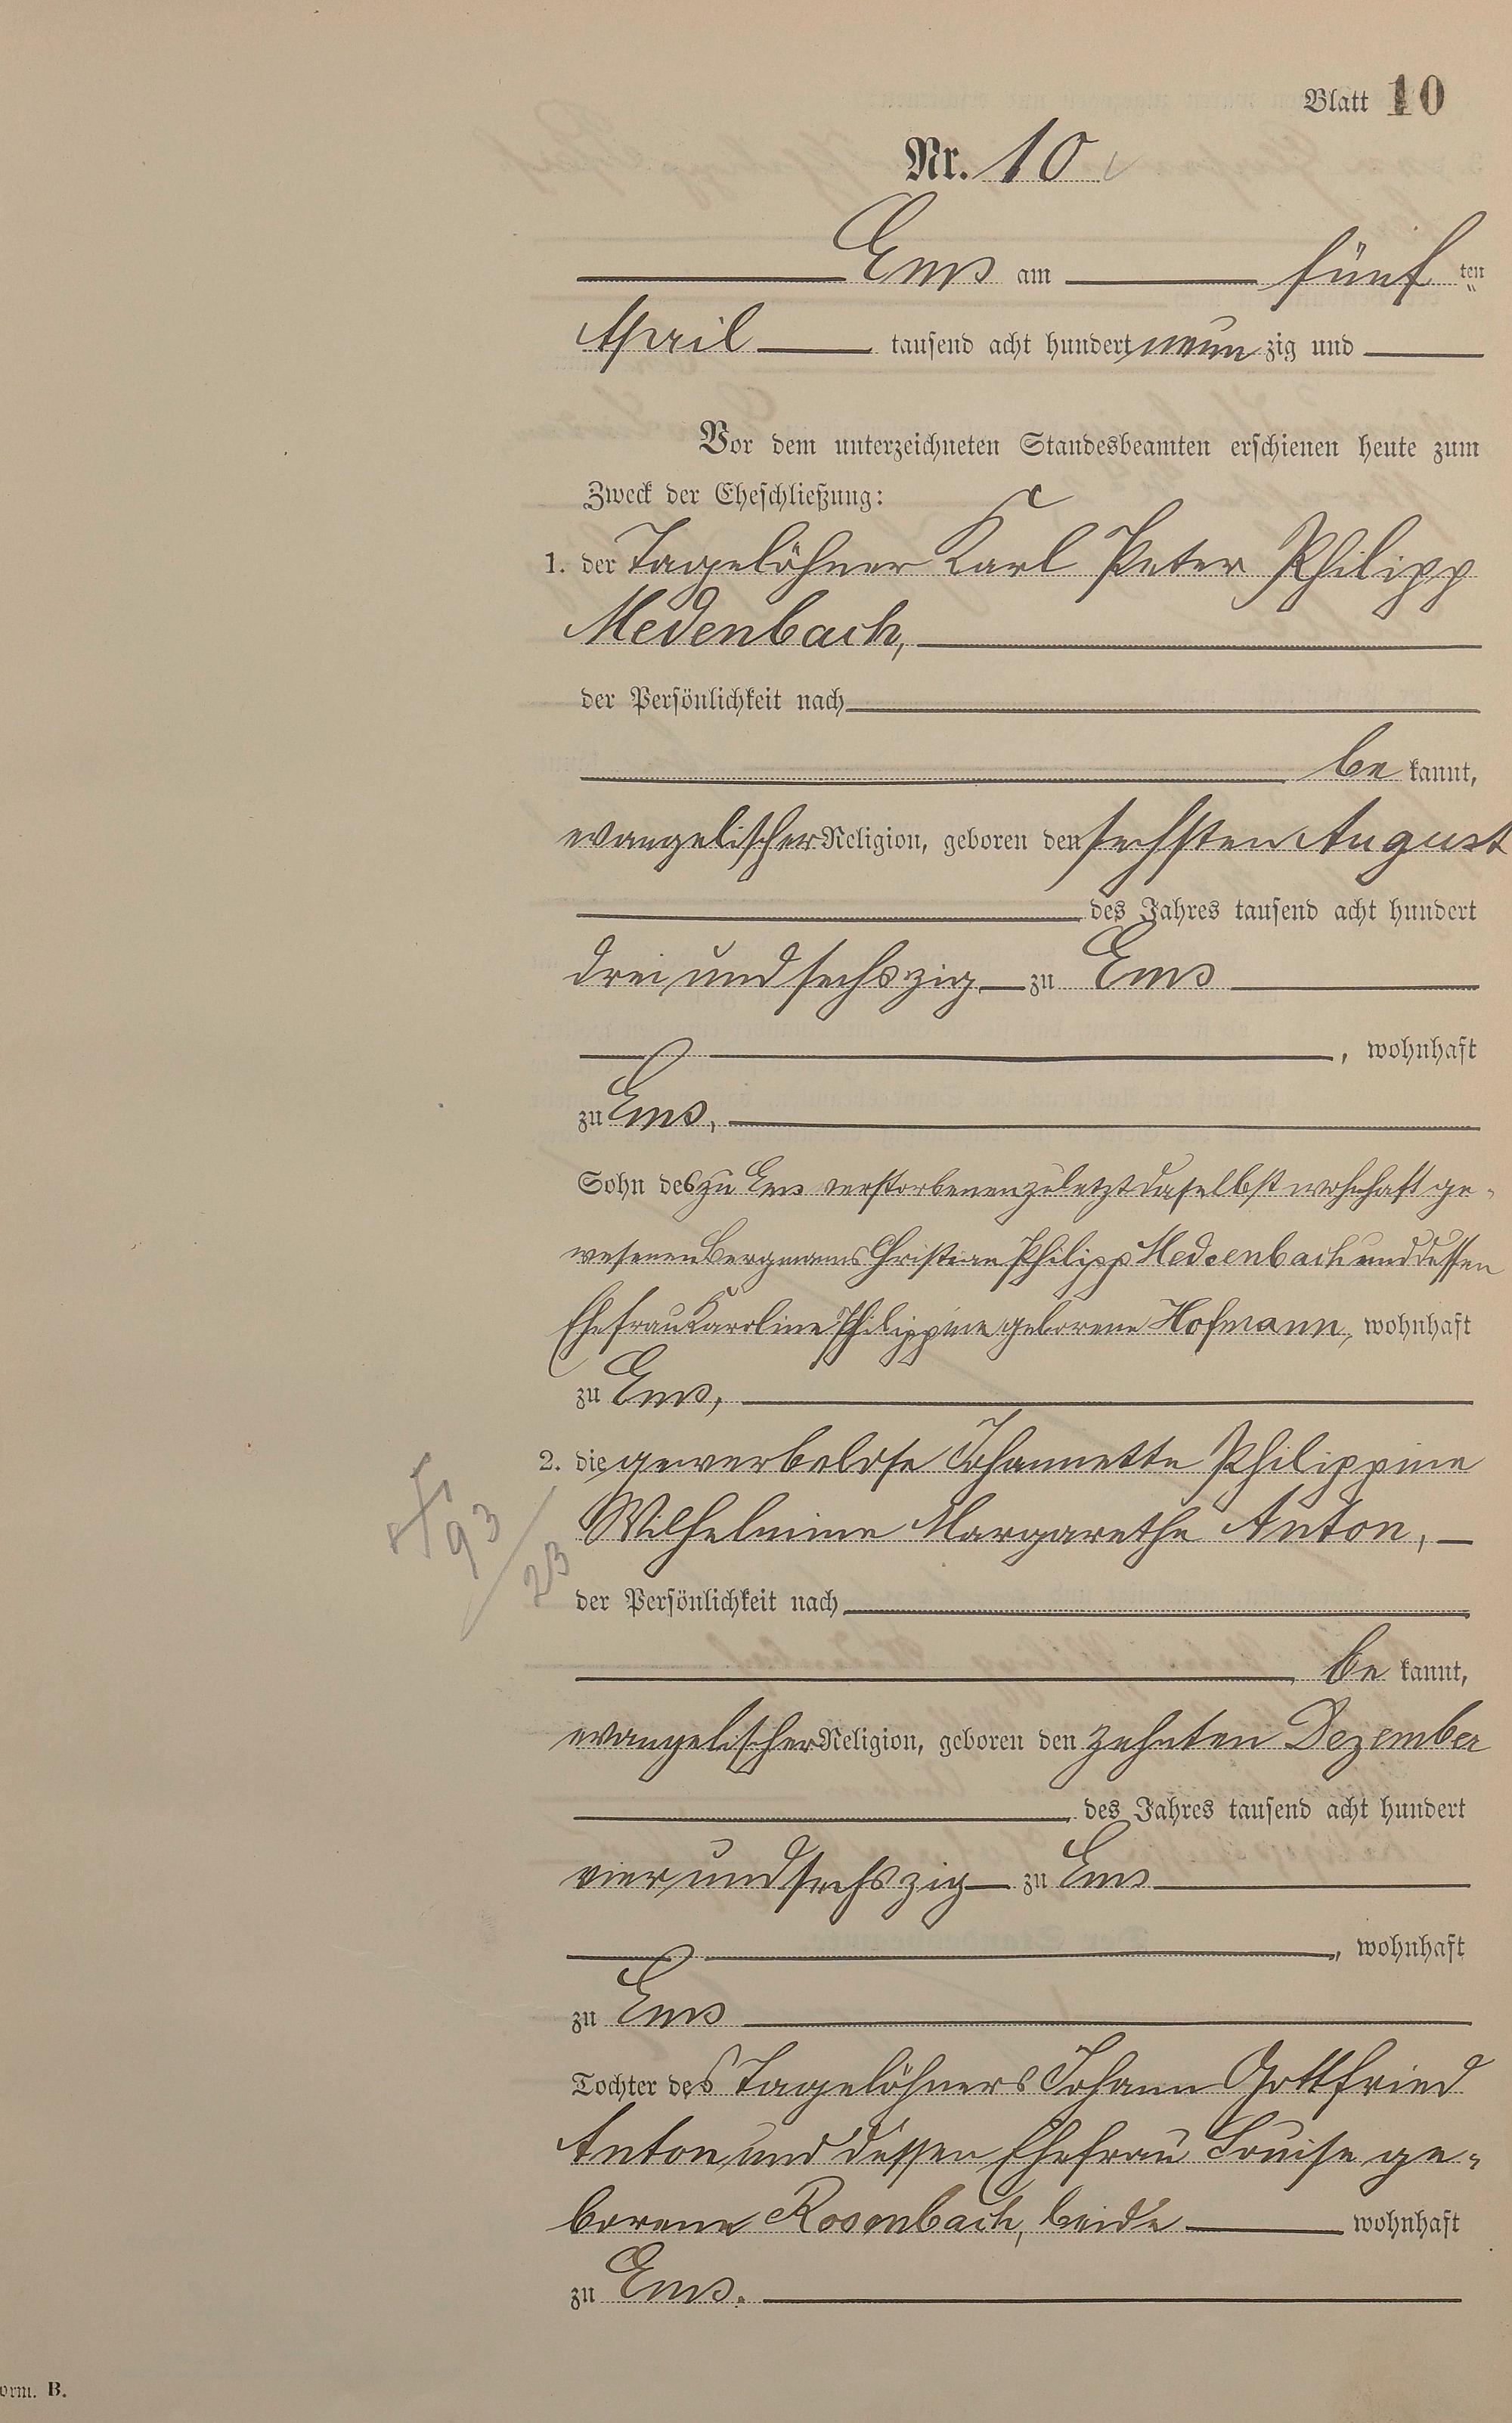 Blatt 10
Nr. 10
Ems am fünf ten
April tausend acht hundert neun zig und
Vor dem unterzeichneten Standesbeamten erschienen heute zum
Zweck der Eheschließung:
1. der Tagelöhner Karl Peter Philipp
Medenbach,
der Persönlichkeit nach
be kannt,
evangelischer Religion, geboren den sechsten August
des Jahres tausend acht hundert
drei und sechszig zu Ems
, wohnhaft
zu Ems,
Sohn des zu Ems verstorbenen zuletzt daselbst wohnhaft ge-
wesenen Bergmanns Christian Philipp Medenbach und dessen
Ehefrau Karoline Philippine geborene Hofmann, wohnhaft
zu Ems,
2. die gewerbelose Johannette Philippine
Wilhelmine Margarethe Anton,
der Persönlichkeit nach
be kannt,
evangelischer Religion, geboren den zehnten Dezember
des Jahres tausend acht hundert
vier und sechszig zu Ems
, wohnhaft
zu Ems
Tochter des Tagelöhners Johann Gottfried
Anton und dessen Ehefrau Louise ge-
borene Rosenbach, beide wohnhaft
zu Ems.
93
23
orm. B.